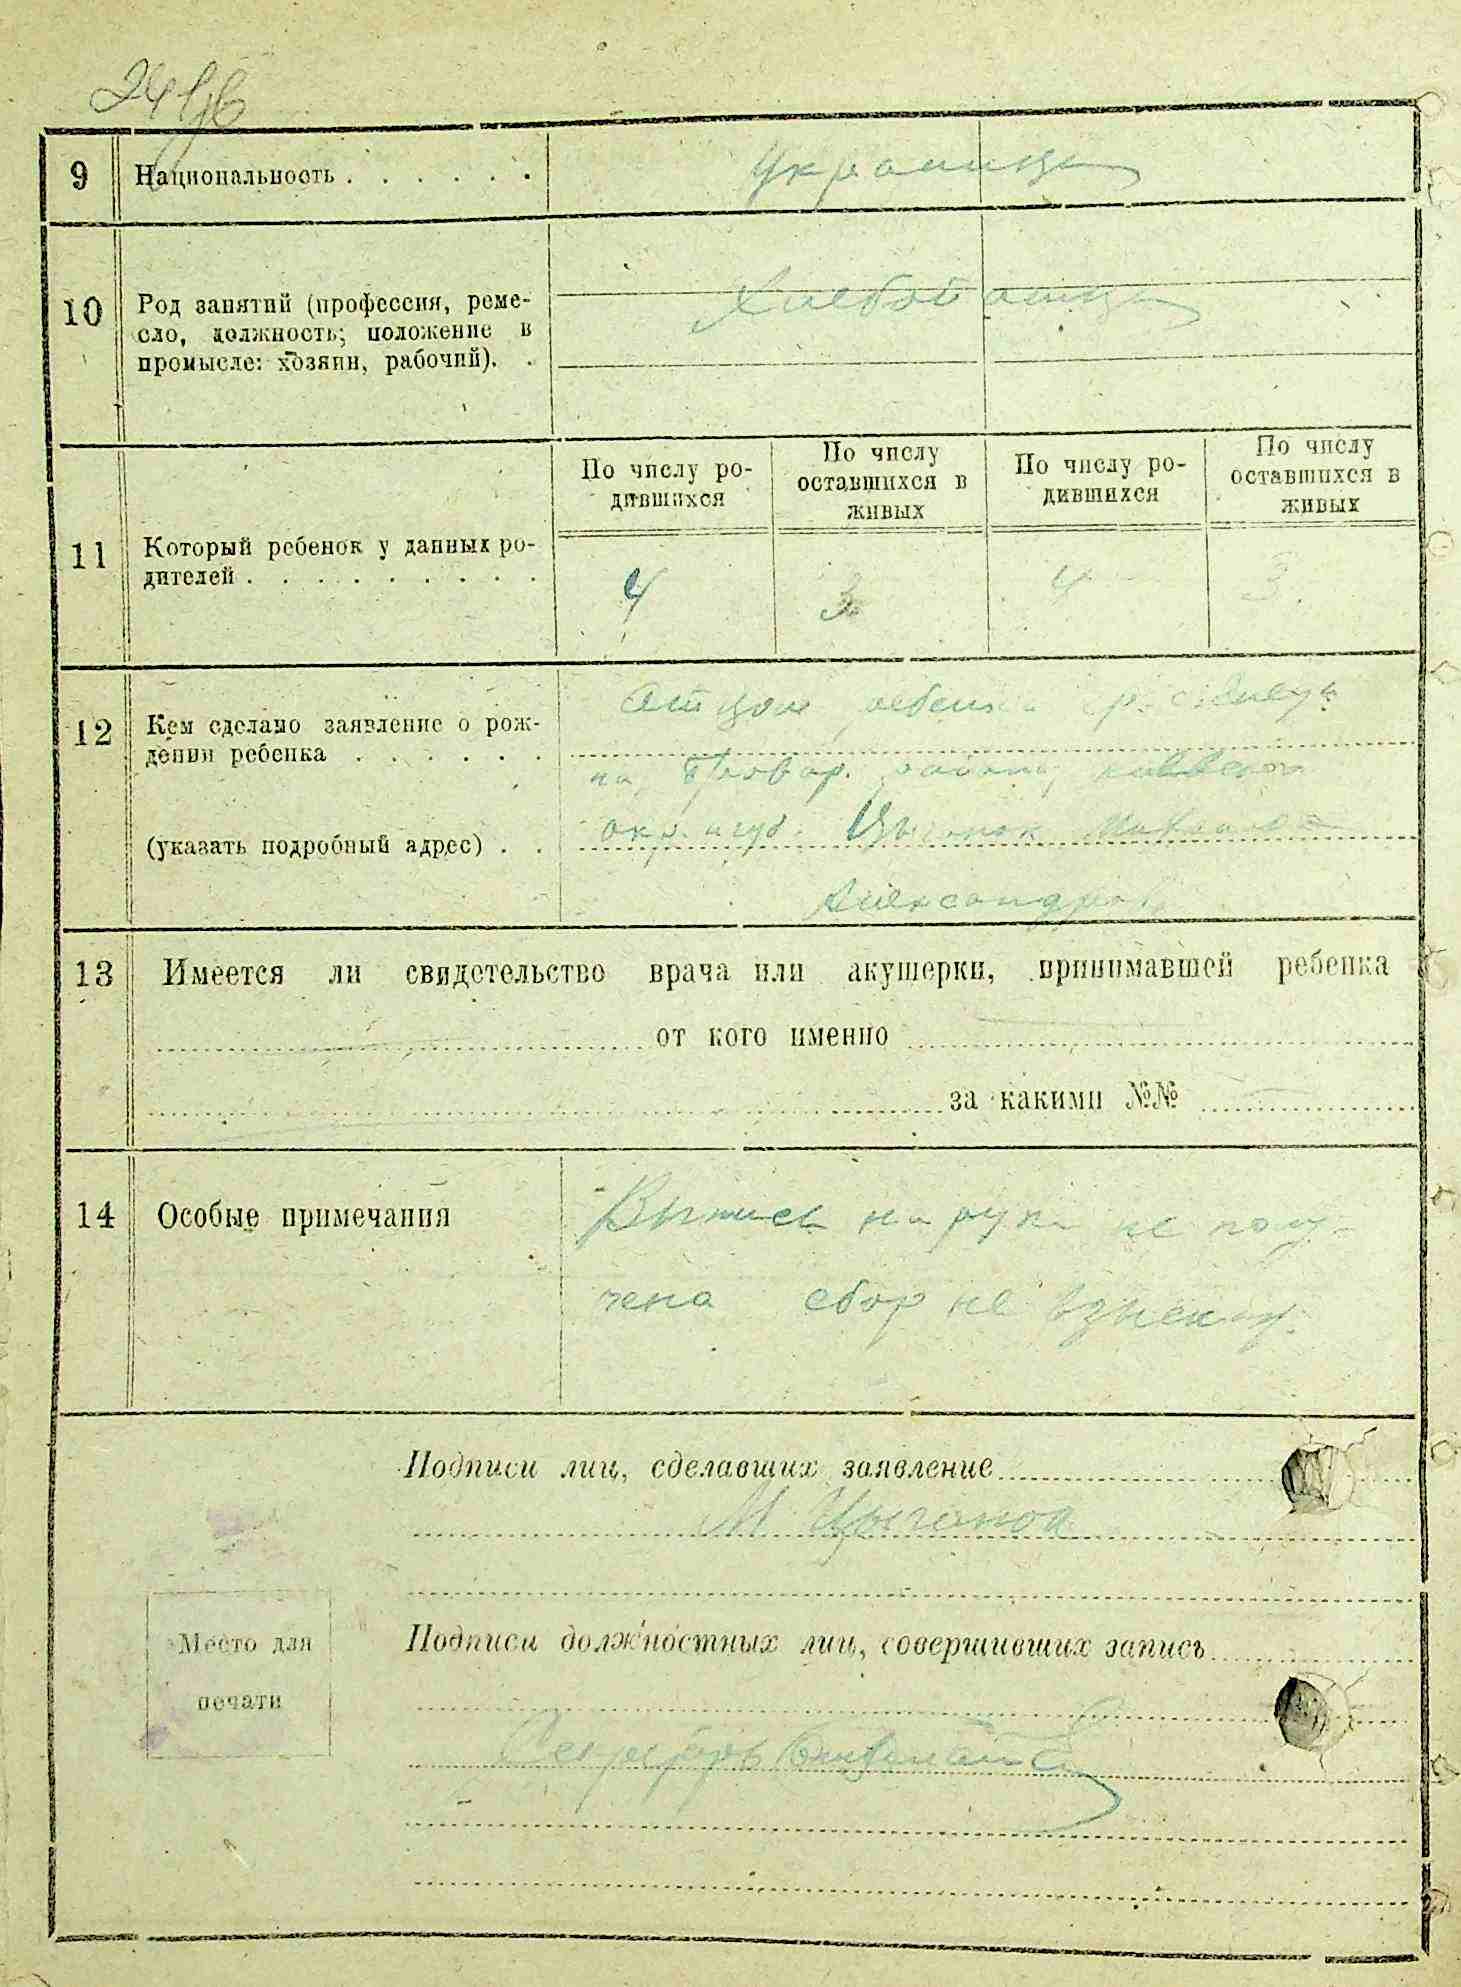 9 Национальность . . . . . . Украинцы
10 Род занятий (професссия, реме-
сло, должность; положение в
промысле: хозяин, рабочий). . Хлебопашцы
По числу ро-
дившихся
По числу
оставшихся в
живых
По числу ро-
дившихся
По числу
оставшихся в
живых
11 Который ребенок у данных ро-
дителей . . . . . . . . . 4 3 4 3
12 Кем сделано заявление о рож-
дении ребенка . . . . . .
(указать подробный адрес) . .
Отцом ребенка гр. с.
района Киевской
окр. и губ. Цыганок
Александров
13 Имеется ли свидетельство врача или акушерки, принимавшей ребенка
от кого именно
за какими №№
14 Особые примечания
Выпись на руки не полу-
чена сбор не взыскан.
Подписи лиц, сделавших заявление
М Цыганок
Место для
печати
Подписи должностных лиц, совершивших запись
Секретарь